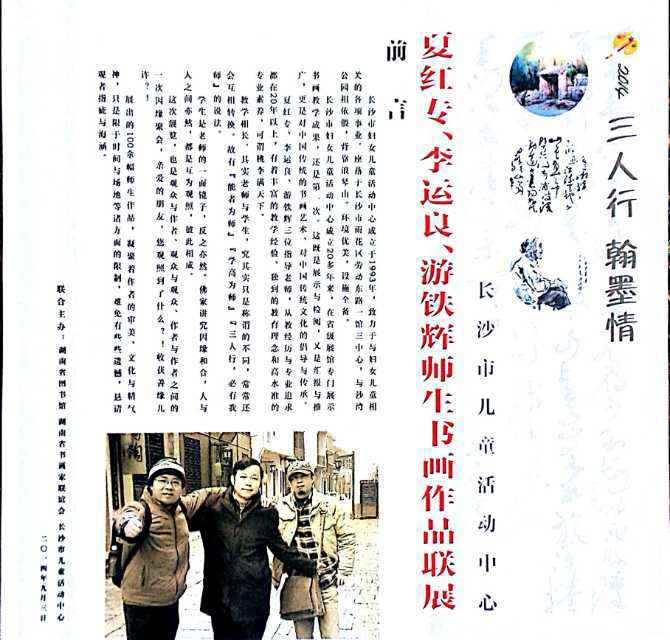 2014 三人行 翰墨情
长沙市儿童活动中心
夏红专、李运良、游铁辉师生书画作品联展
前言
长沙市妇女儿童活动中心成立于1993年，致力于与妇女儿童相
关的各项事业。座落于长沙市雨花区劳动东路一馆三中心，与沙湾
公园相依偎，背靠浪琴山。环境优美，设施全备。
长沙市妇女儿童活动中心成立20多年来，在省级展馆专门展示
书画教学成果，还是第一次。这既是展示与检阅，又是汇报与推
广，更是对中国传统的书画艺术、对中国传统文化的倡导与传承。
夏红专、李运良、游铁辉三位指导老师，从教经历与专业追求
都在20年以上，有着丰富的教学经验、独到的教育理念和高水准的
专业素养，可谓桃李满天下。
教学相长，其实老师与学生，究其实只是称谓的不同，常常还
会互相转换，故有『能者为师』『学高为师』『三人行，必有我
师』的说法。
学生是老师的一面镜子，反之亦然。佛家讲究因缘和合，人与
人之间亦然，都是互为观照，彼此相成。
这次展览，也是观众与作者、观众与观众、作者与作者之间的
一次因缘聚会，亲爱的朋友，您观照到了什么？！收获善缘几
许？！
展出的100余幅师生作品，凝聚着作者的审美、文化与精气
神，只是限于时间与场地等诸方面的限制，难免有些些遗憾，恳请
观者指疵与海涵。
联合主办：湖南省图书馆 湖南省书画家联谊会 长沙市儿童活动中心
二〇一四年九月三日